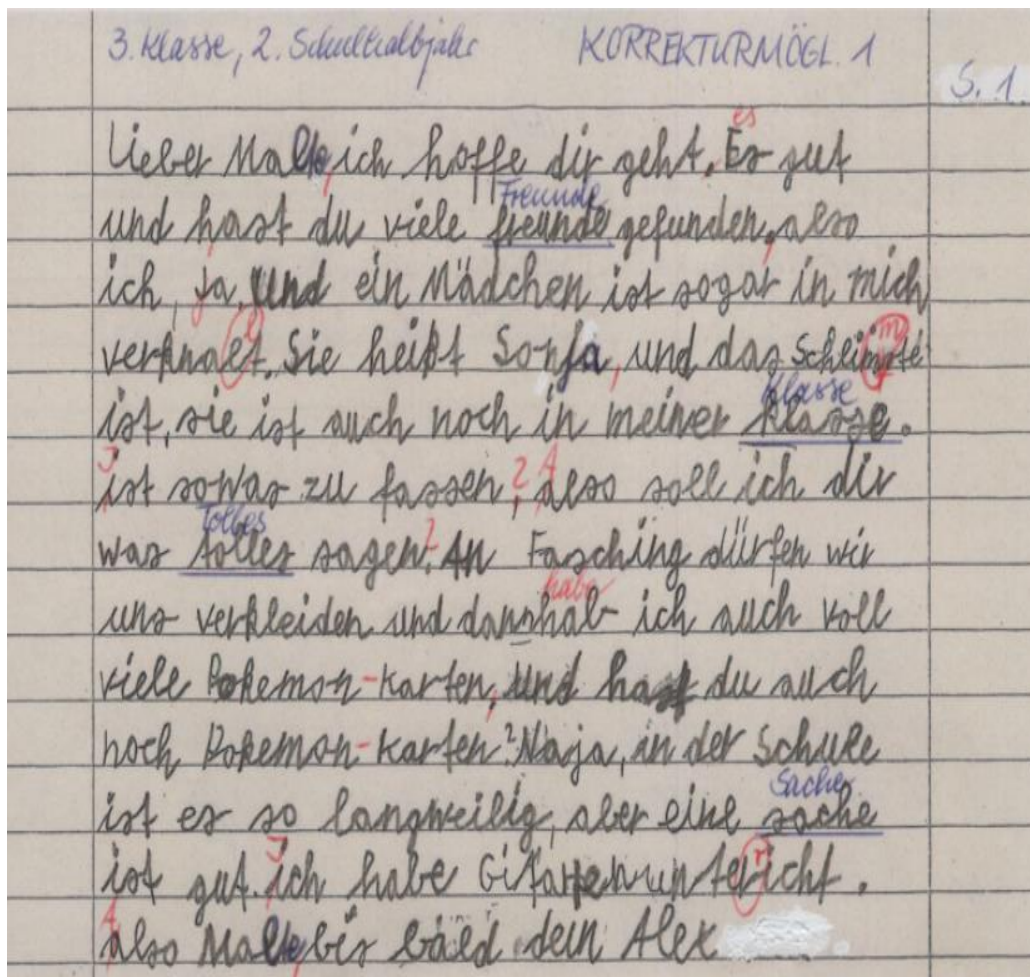 3. Klasse, 2. Schulhalbjahr KORREKTURMÖGL. 1
S. 1
es
Lieber Malte, ich hoffe dir geht. Es gut
Freunde
und hast du viele freunde gefunden, also
ich, ja, und ein Mädchen ist sogar in mich
l
verknaet. Sie heißt Sonja, und das Schlimste
m
Klasse
ist, sie ist auch noch in meiner klasse.
I ? A
ist sowas zu fassen, also soll ich dir
Tolles
was tolles sagen? An Fasching dürfen wir
habe
uns verkleiden und dannhab ich auch voll
viele Pokemon-karten, und hast du auch
noch Pokemon-karten? Naja, in der Schule
Sache
ist es so langweilig, aber eine sache
I r
ist gut. ich habe Gitarrenuntericht.
A
also Malte, bis bald dein Alex